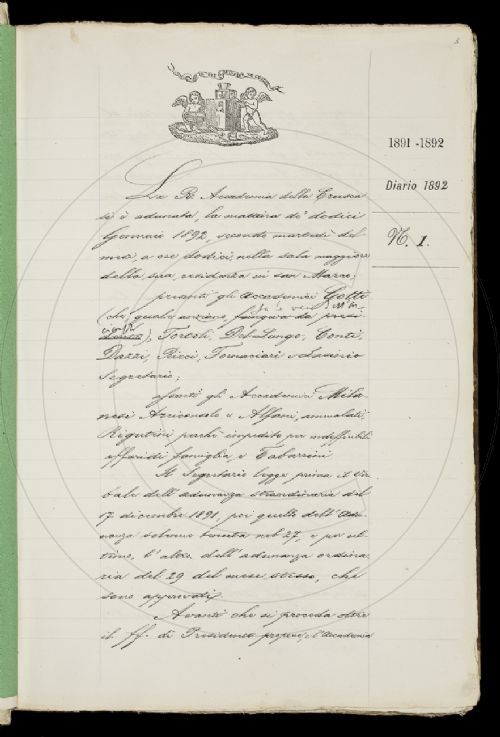 5
1891-1892
Diario 1892
N. 1.
La R. Accademia della Crusca
si è adunata, la mattina de' dodici
Gennaio 1892, secondo martedì del
mese, a ore dodici, nella sala maggiore
della sua residenza in San Marco:
presenti gli accademici Gotti
(che, quale anziano, fungeva da presi-
Tortoli, Del Lungo, Conti,
Dazzi, Ricci, Tomaiuoli e
Segretario;
assenti gli Accademici Mila-
nesi Arciconsolo e Alfani, ammalati,
Rigutini perché impedito per indispensabili
affari di famiglia, e Tabarrini
Il Segretario legge prima il ver-
bale dell'adunanza straordinaria del
17 dicembre 1891, poi quello dell'adu-
nanza solenne tenuta nel 27, e per ul-
timo, l'altro dell'adunanza ordina-
ria del 29 del mese stesso, che
sono approvati.
Avanti che si proceda oltre
il ff. di Presidente propone l'Accademia